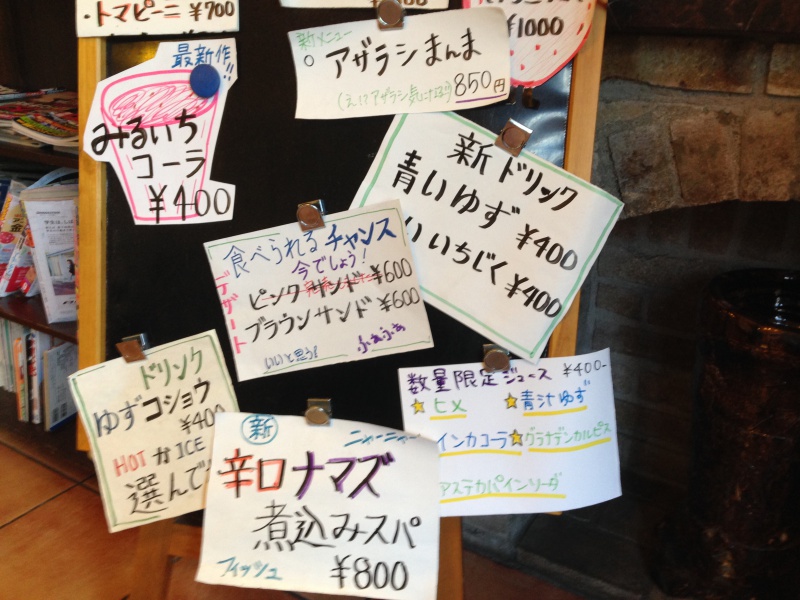 ・トマピーニ ¥700
¥1000
最新作!!
みるいち
コーラ
¥400
新メニュー
○ アザラシまんま
850円
新ドリンク
青いゆず ¥400
いちじく ¥400
食べられるチャンス
今でしょう!
デザート
ピンクサンド ¥600
ブラウンサンド ¥600
いいと思う!
ふぁふぁ
ドリンク
ゆずコショウ
¥400
HOT か ICE
選んで
数量限定ジュース ¥400-
☆ヒメ ☆青汁ゆず
インカコーラ ☆グラナデンカルピス
アステカパインソーダ
新 ニャーニャー
辛口ナマズ
煮込みスパ
フィッシュ ¥800